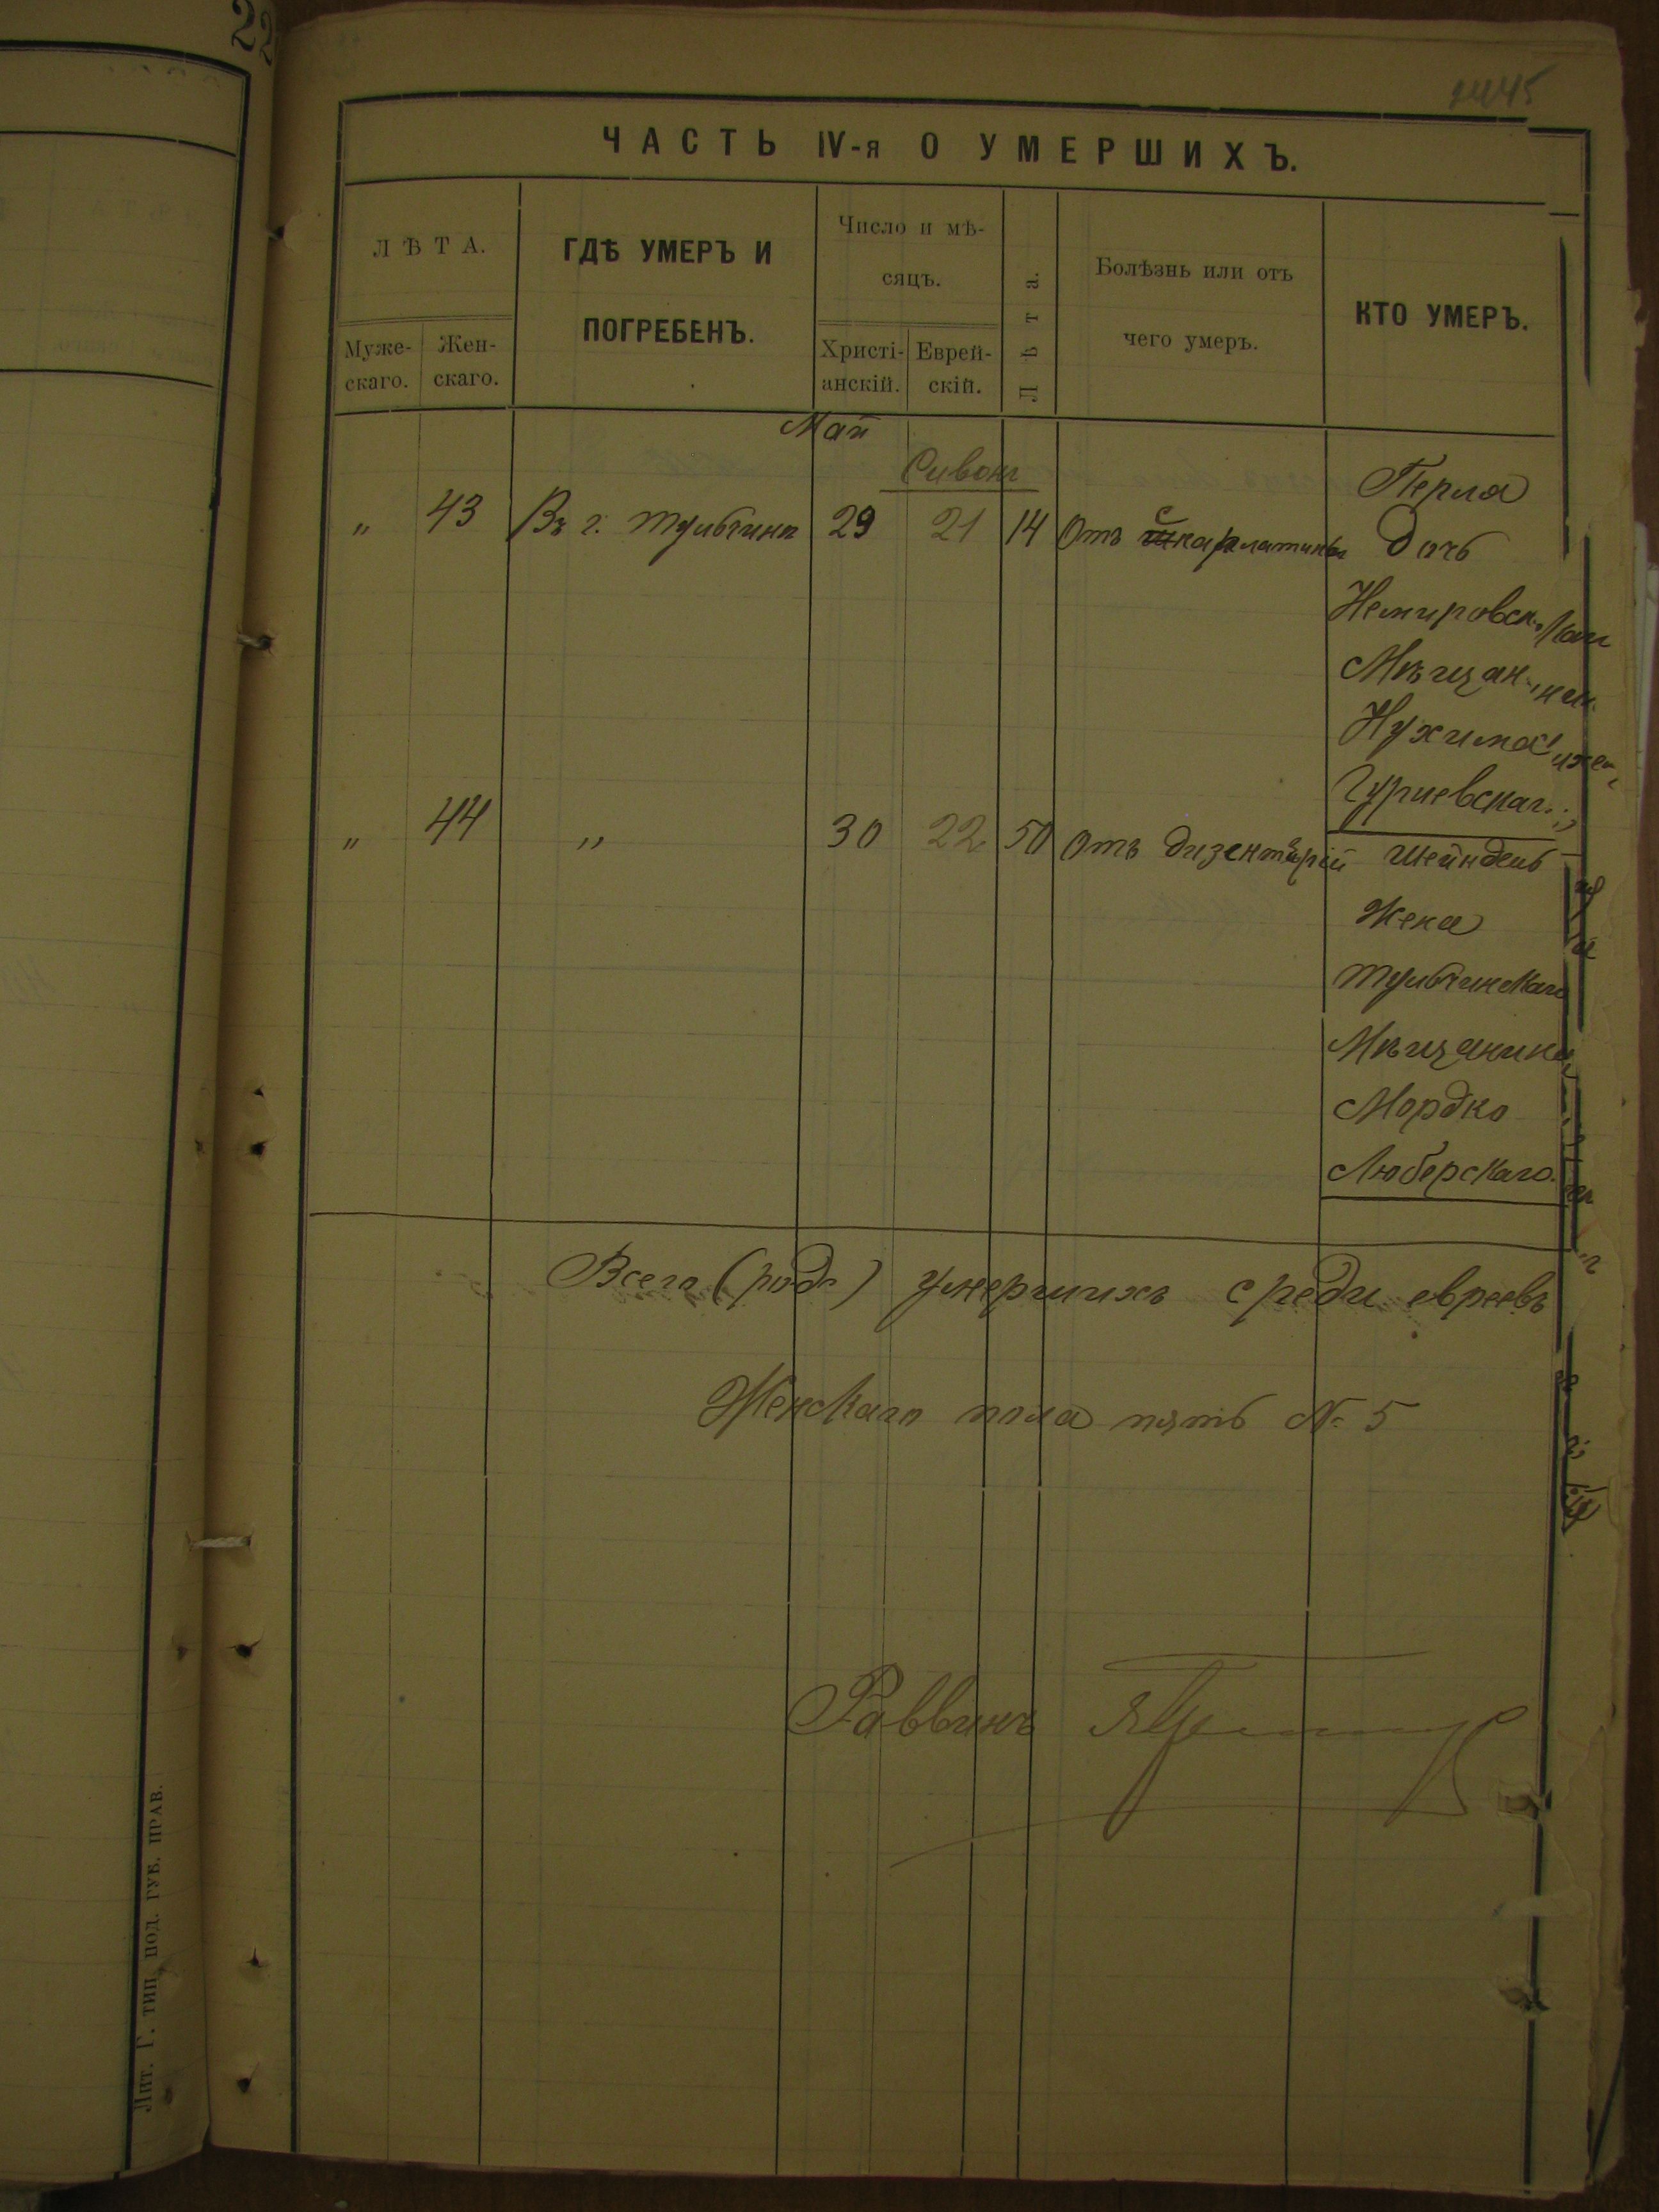 22
2445
ЧАСТЬ IV-я О УМЕРШИХЪ.
ЛѢТА.
Муже-
скаго.
Жен-
скаго.
ГДѢ УМЕРЪ И
ПОГРЕБЕНЪ.
Число и мѣ-
сяцъ.
Христі-
анскій.
Еврей-
скій.
Лѣта.
Болѣзнь или отъ
чего умеръ.
КТО УМЕРЪ.
Май
Сивонъ
„ 43 Въ г. Тульчинѣ 29 21 14 Отъ скарлатины
Перла
Дочь
Немировск.
Мѣщан.
Нухима
Гуриевскаг.
„ 44 „ 30 22 50 Отъ дизентерій
Шейндель
Жена
Тульчинскаго
Мѣщанина
Мордко
Люберскаго.
Всего умершихъ среди евреевъ
Женскаго пола пять № 5
Раввинъ
Лит. Г. тип. под. губ. прав.